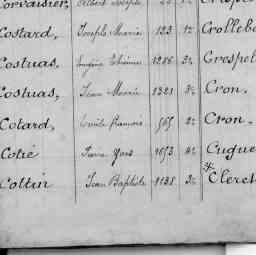 Corvaisier, Albert Joseph
Costard, Joseph Marie 123 1re Crolleb
Costuas, Eugène Etienne 1286 3e Crespel
Costuas, Jean Marie 1321 3e Cron.
Cotard, Emile François 565 2e Cron.
Cotié Pierre Yves 1653 4e Cugue
Cottin Jean Baptiste 1138 3e Cleret